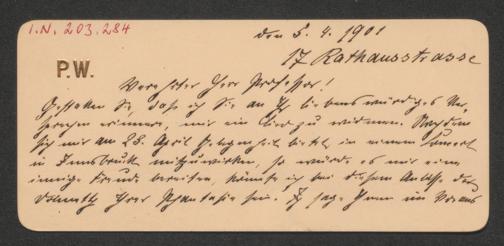 I.N. 203.284
den 5. 4. 1901
17 Rathausstrasse
P.W.
Verehrter Herr Professor!
Gestatten Sie, dass ich Sie an Ihr liebenswürdiges Ver-
sprechen erinnere, mir ein Lied zu widmen. Nachdem
sich mir am 28. April Gelegenheit bietet, in einem Concert
in Innsbruck mitzuwirken, so würde es mir eine
innige Freude bereiten, könnte ich bei diesem Anlasse der
Ihrer Phantasie sein. Ich sage Ihnen im Voraus